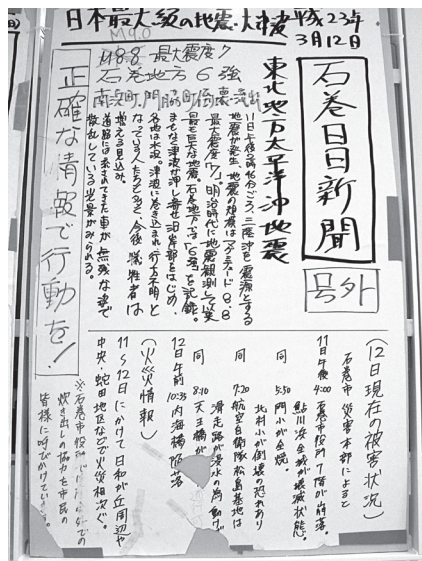 日本最大級の地震・大津波
平成23年
3月12日
M9.0
M8.8 最大震度7
石巻地方6強
南浜町、門脇町倒壊・流出
石巻日日新聞
号外
東北地方太平洋沖地震
11日午後2時46分ごろ、三陸沖を震源とする
地震が発生。地震の規模はマグニチュード8.8
最大震度「7」。明治時代に地震観測して以
最も巨大な地震。石巻地方では「6強」を記録。
まもなく津波が押し寄せ沿岸部をはじめ、
各地は水没。津波に巻き込まれ行方不明と
なっている人たちも多く、今後犠牲者は
増える見込み。
道路には流されてきた車が無残な姿で
散乱している光景がみられる。
正確な情報で行動を!
(12日現在の被害状況)
石巻市災害本部によると
11日午後4:00 石巻市役所7階が崩落。
鮎川浜全域が壊滅状態。
同 5:50 門小が全焼。
北村小が倒壊の恐れあり
同 7:20 航空自衛隊松島基地は
滑走路が浸水の為
同 8:10 天王橋が
12日午前10:35 内海橋陥落
(火災情報)
11~12日にかけて日和が丘周辺や
中央・蛇田地区などで火災相次ぐ。
※石巻市役所
炊き出しの協力を市民の
皆様に呼びかけてい